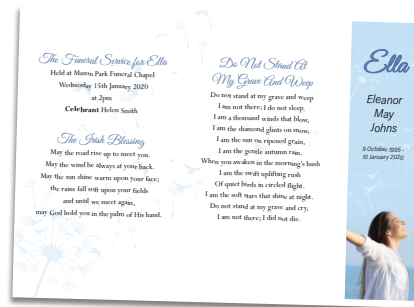 The Funeral Service for Ella
Held at Mason Park Funeral Chapel
Wednesday 15th January 2020
at 2pm
Celebrant Helen Smith
The Irish Blessing
May the road rise up to meet you.
May the wind be always at your back.
May the sun shine warm upon your face;
the rains fall soft upon your fields
and until we meet again,
may God hold you in the palm of His hand.
Do Not Stand At
My Grave And Weep
Do not stand at my grave and weep
I am not there; I do not sleep.
I am a thousand winds that blow,
I am the diamond glints on snow,
I am the sun on ripened grain,
I am the gentle autumn rain.
When you awaken in the morning's hush
I am the swift uplifting rush
Of quiet birds in circled flight.
I am the soft stars that shine at night.
Do not stand at my grave and cry,
I am not there; I did not die.
Ella
Eleanor
May
Johns
9 October 1995 -
10 January 2020